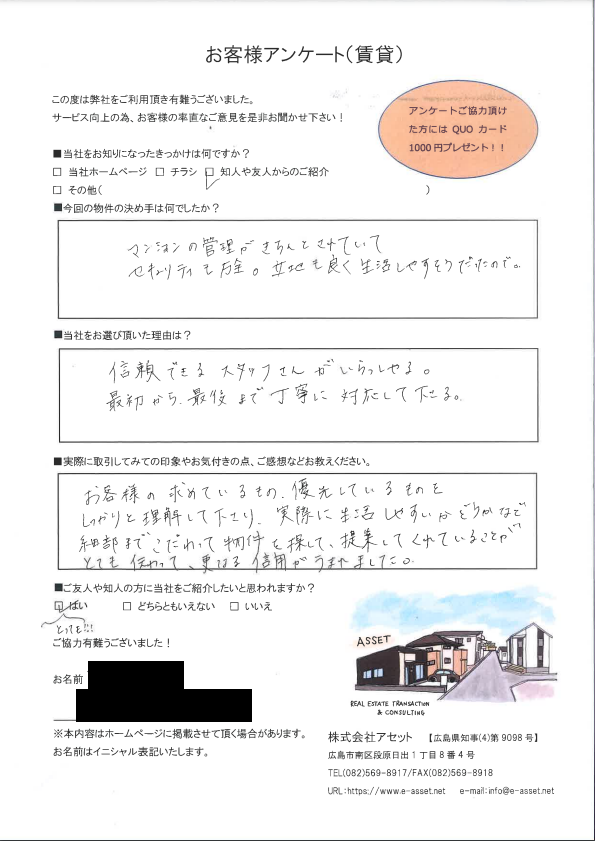 お客様アンケート（賃貸）
この度は弊社をご利用頂き有難うございました。
サービス向上の為、お客様の率直なご意見を是非お聞かせ下さい！
アンケートご協力頂け
た方には QUO カード
1000 円プレゼント！！
■当社をお知りになったきっかけは何ですか？
□ 当社ホームページ □ チラシ □ 知人や友人からのご紹介
□ その他（ ）
■今回の物件の決め手は何でしたか？
マンションの管理がきちんとされていて
セキュリティも万全。立地も良く生活しやすそうだったので。
■当社をお選び頂いた理由は？
信頼できるスタッフさんがいらっしゃる。
最初から、最後まで丁寧に対応して下さる。
■実際に取引してみての印象やお気付きの点、ご感想などお教えください。
お客様の求めているもの、優先しているものを
しっかりと理解して下さり、実際に生活しやすいかどうかなど
細部までこだわって物件を探して、提案してくれていることが
とても伝わって、更なる信用がうまれました。
■ご友人や知人の方に当社をご紹介したいと思われますか？
□ はい □ どちらともいえない □ いいえ
とっても!!!
ご協力有難うございました！
お名前
※本内容はホームページに掲載させて頂く場合があります。
お名前はイニシャル表記いたします。
ASSET
REAL ESTATE TRANSACTION
& CONSULTING
株式会社アセット 【広島県知事(4)第 9098 号】
広島市南区段原日出 1 丁目 8 番 4 号
TEL(082)569-8917/FAX(082)569-8918
URL:https://www.e-asset.net e-mail:info@e-asset.net